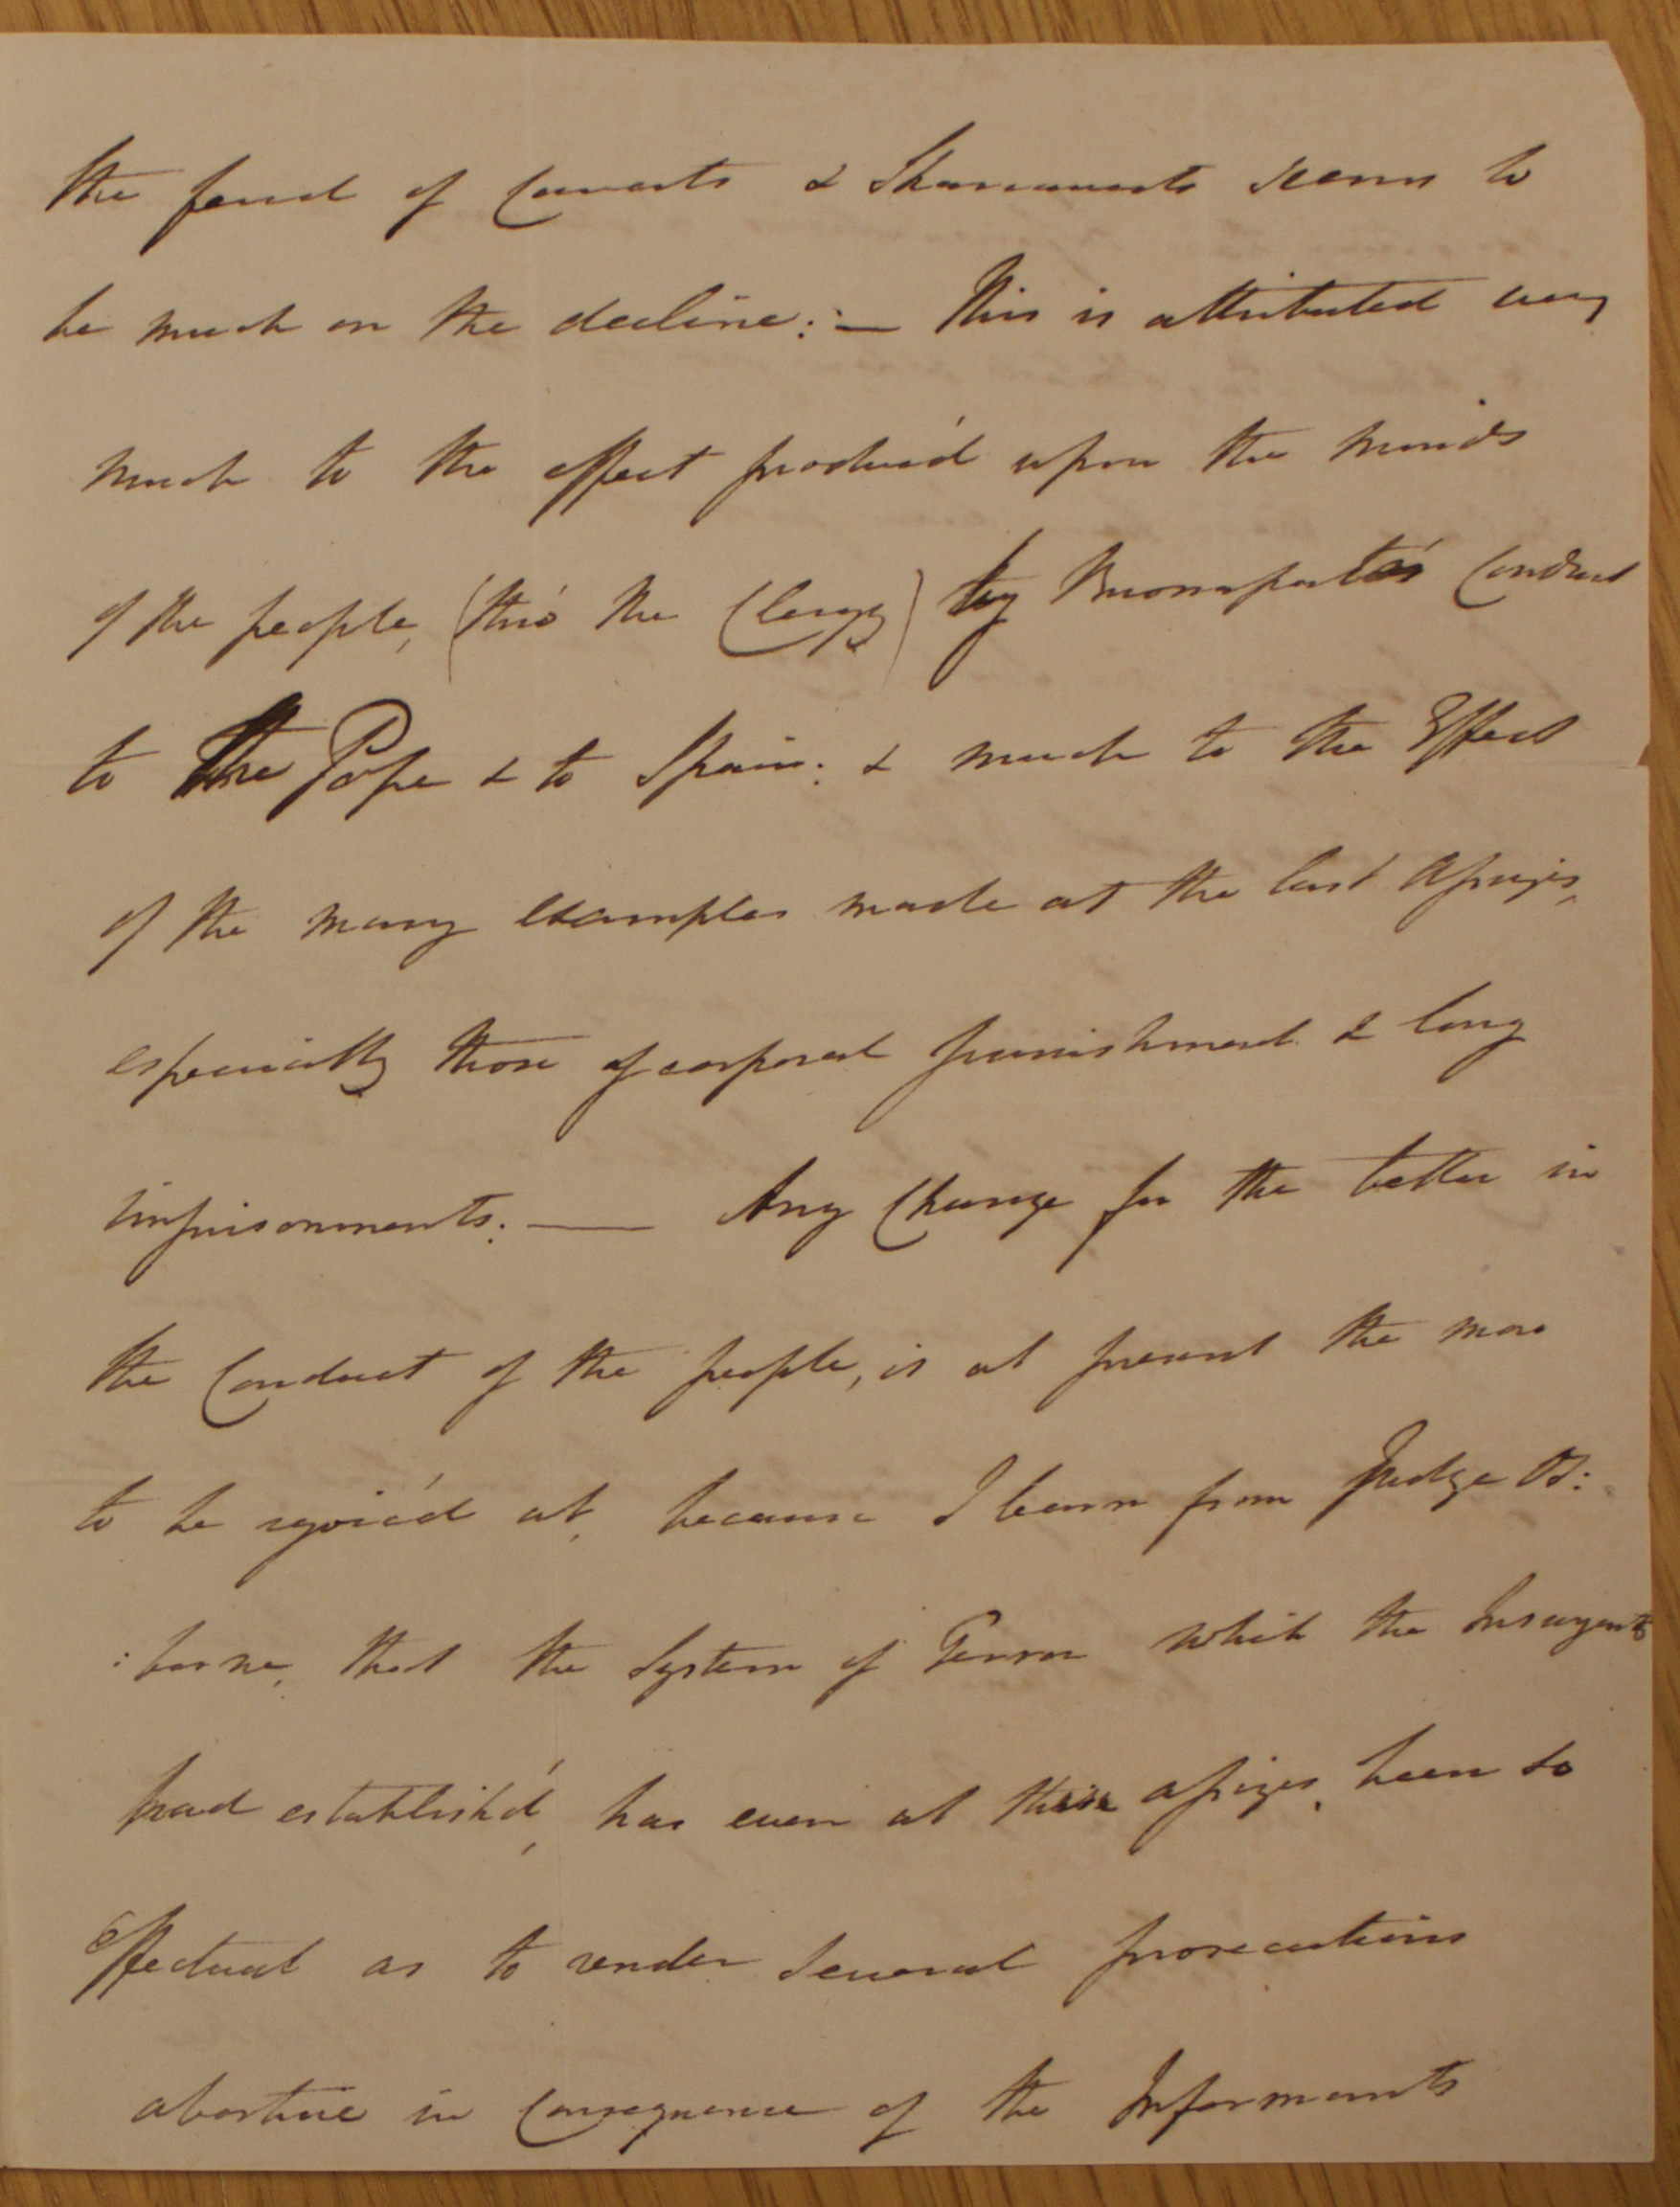 the feud of Caravats & Shanavests seems to
be much on the decline:— This is attributed very
much to the effect produc'd upon the minds
of the people, (thro' the Clergy) by Buonaparte's Conduct
to the Pope & to Spain: & much to the Effect
of the many examples made at the last Assizes,
especially those of corporal punishment & long
imprisonments.— Any Change for the better in
the Conduct of the people, is at present the more
to be rejoic'd at, because I learn from Judge Os:
:borne, that the System of Terror which the Insurgents
had establish'd, has even at these assizes, been so
Effectual as to render several prosecutions
abortive in Consequence of the Informants